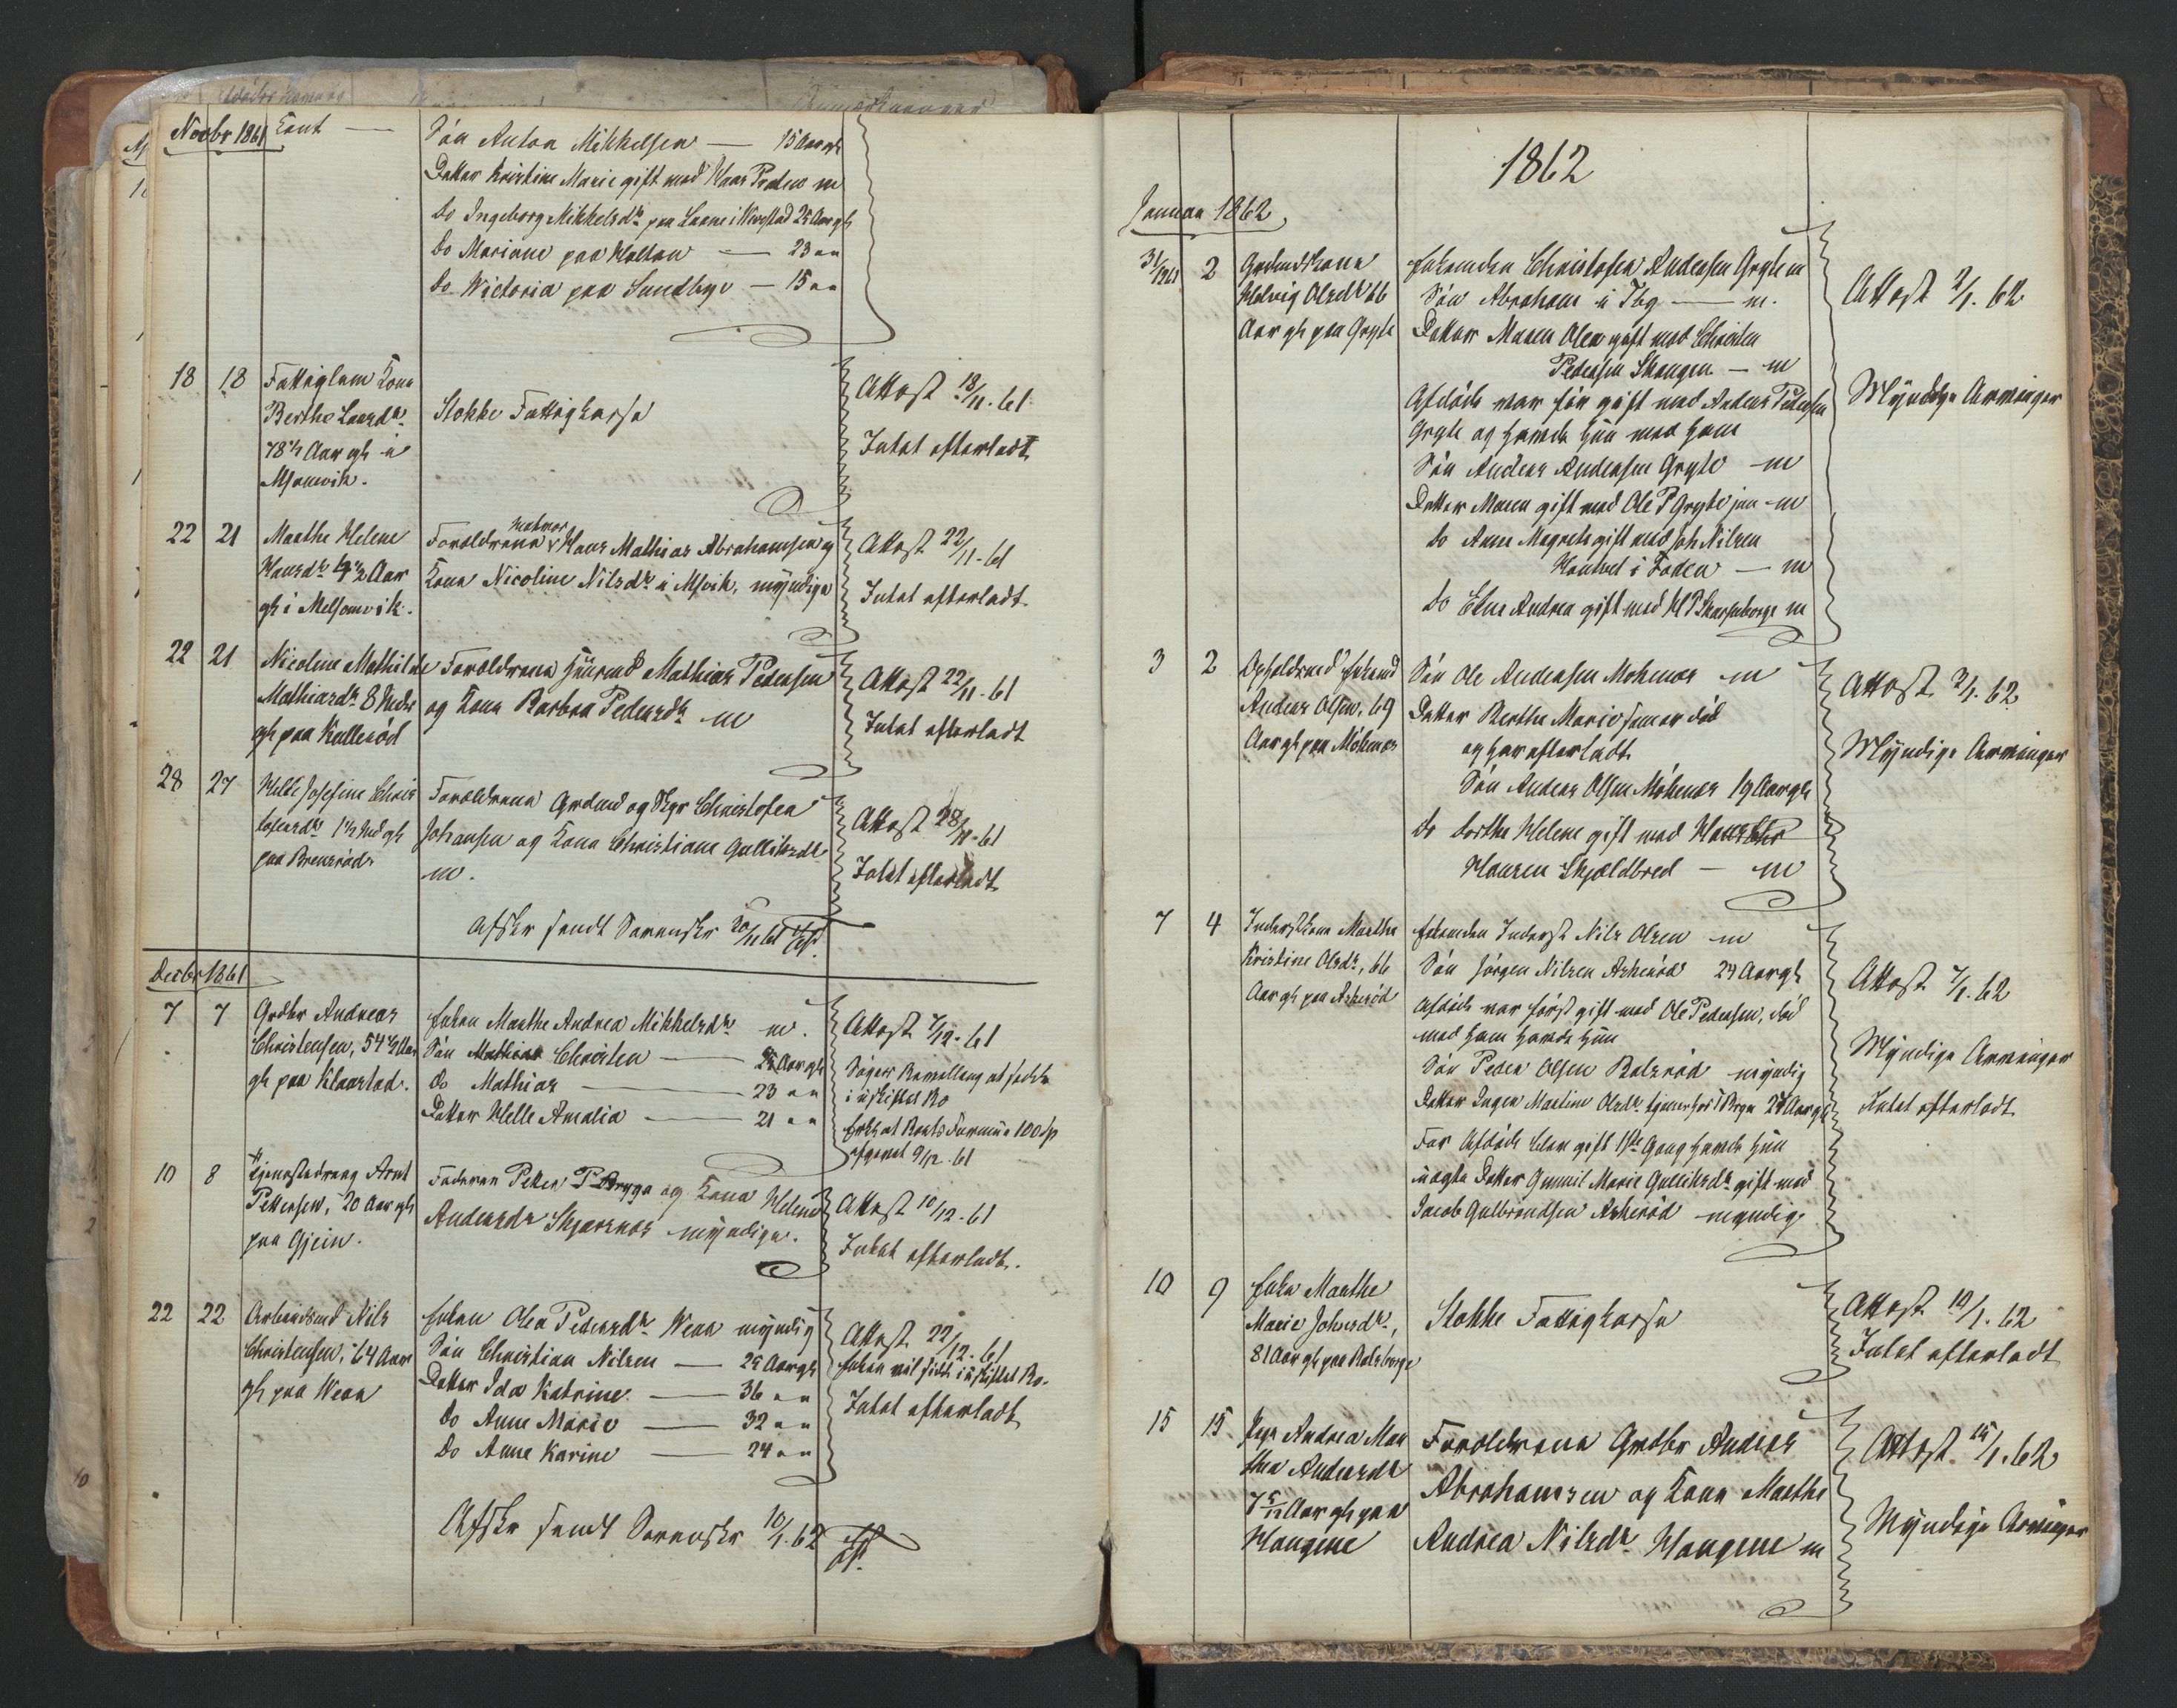 Novbr 1861
Cont —
Søn Anton Mikkelsen — 15 Aar gl
Datter Kristine Marie gift med Hans Preteo m
do Ingeborg Mikkelsdr paa Laane i 25 Aar gl
do Mariane paa Holtan — 23 " "
do Wictoria paa Sundbye — 15 " "
18 18
Fattiglem Kone
Berthe Larsdr
78½ Aar gl i
Msomvik.
Stokke Fattigkasse
Attest 18/11. 61
Intet efterladt
22 21
Marthe Helene
Hansdr ½ Aar
gl i Melsomvik.
Matros
Forældrene Hans Mathias Abrahamsen og
Kone Nicoline Nilsdr i Msvik, myndige
Attest 22/11-61
Intet efterladt
22 21
Nicoline Mathilde
Mathiasdr 8 Mdr
gl paa Kullerød
Forældrene Huusmd Mathias Pedersen
og Kone Barbra Pedersdr m
Attest 22/11-61
Intet efterladt
28 27
Helle Josefine Chris
tofersdr 1½ Md gl
paa Brensrød
Forældrene Grdmd og Skpr Christofer
Johansen og Kone Christiane Gulliksdr
m.
Attest 28/11-61
Intet efterladt
Afskr sendt Sorenskr 30/11 61
Decbr 1861
7 7
Grdbr Andreas
Christensen, 54½ Aar
gl paa Klaastad.
Enken Marthe Andrea Mikkelsdr m.
Søn Christen — 25 Aar gl
do Mathias — 23 " "
Datter Helle Amalia — 21 " "
Attest 7/12-61
Søger Bevilling at sidde
i uskiftet Bo
Erkl at Boets Formue 100 Sp
afgivet 9/12. 61
10 8
Tjenestedreng Arnt
Pettersen, 20 Aar gl
paa Gjein.
Faderen Petter P Bryga og Kone Helene
Andersdr Skjærsnes myndige.
Attest 10/12-61
Intet efterladt.
22 22
Arbeidsmd Nils
Christensen, 64 Aar
gl paa Wear
Enken Olea Pedersdr Wear myndig
Søn Christian Nilsen — 29 Aar gl
Datter Ida Katrine — 36 " "
do Anne Marie — 32 " "
do Anne Karine — 24 " "
Attest 22/12. 61
Enken vil sidde i uskiftet Bo.
Intet efterladt
Afskr sendt Sorenskr 10/1. 62
1862
Januar 1862
31/12 61 2
Grdmdskone
Helvig Olsdr 66
Aar gl paa Gryte
Enkemden Christofer Andersen Gryte m
Søn Abraham i Tbg — m.
Datter Maren Olea gift med Christen
Pedersen Skaugen — m
Afdøde var før gift med Anders Pedersen
Gryte og havde hun med ham
Søn Anders Andersen Gryte m
Datter Maren gift med Ole P Gryte jun m
do Anne Magrete gift med Joh Nilsen
Hautvet i Foden — m
do Elna Andrea gift med H P Skarsenborge m
Attest 2/1. 62
Myndige Arvinger
3 2
Opholdsmd Enkemd
Anders Olsen, 69
Aar gl paa Møkenes
Søn Ole Andersen Møkenes m
Datter Berthe Marie som er død
og har efterladt
Søn Anders Olsen Møkenes 19 Aar gl
do Dorthe Helene gift med Hans Chr
Hansen Skjældbred — m
Attest 3/1. 62
Myndige Arvinger
7 4
Inderstkone Marthe
Kristine Olsdr, 66
Aar gl paa Askerød
Enkemden Inderst Nils Olsen m
Søn Jørgen Nilsen Askerød 29 Aar gl
Afdøde var først gift med Ole Pedersen, død
med ham havde hun
Søn Peder Olsen Ralsrød myndig
Datter Inger Martine Olsdr tjener hos Bryn 27 Aar gl
Før Afdøde blev gift 1ste Gang havde hun
uægte Datter Gunnil Marie Gulliksdr gift med
Jacob Gulbrandsen Askerød myndig
Attest 7/1. 62
Myndige Arvinger
Intet efterladt
10 9
Enke Marthe
Marie Johnsdr,
81 Aar gl paa Ralsberge
Stokke Fattigkasse
Attest 10/1. 62
Intet efterladt
15 15
Pige Andrea Mar
thea Andersdr
7 5/12 Aar gl paa
Haugene
Forældrene Grdbr Anders
Abrahamsen og Kone Marthe
Andrea Nilsdr Haugene m
Attest 15/1. 62
Myndige Arvinger